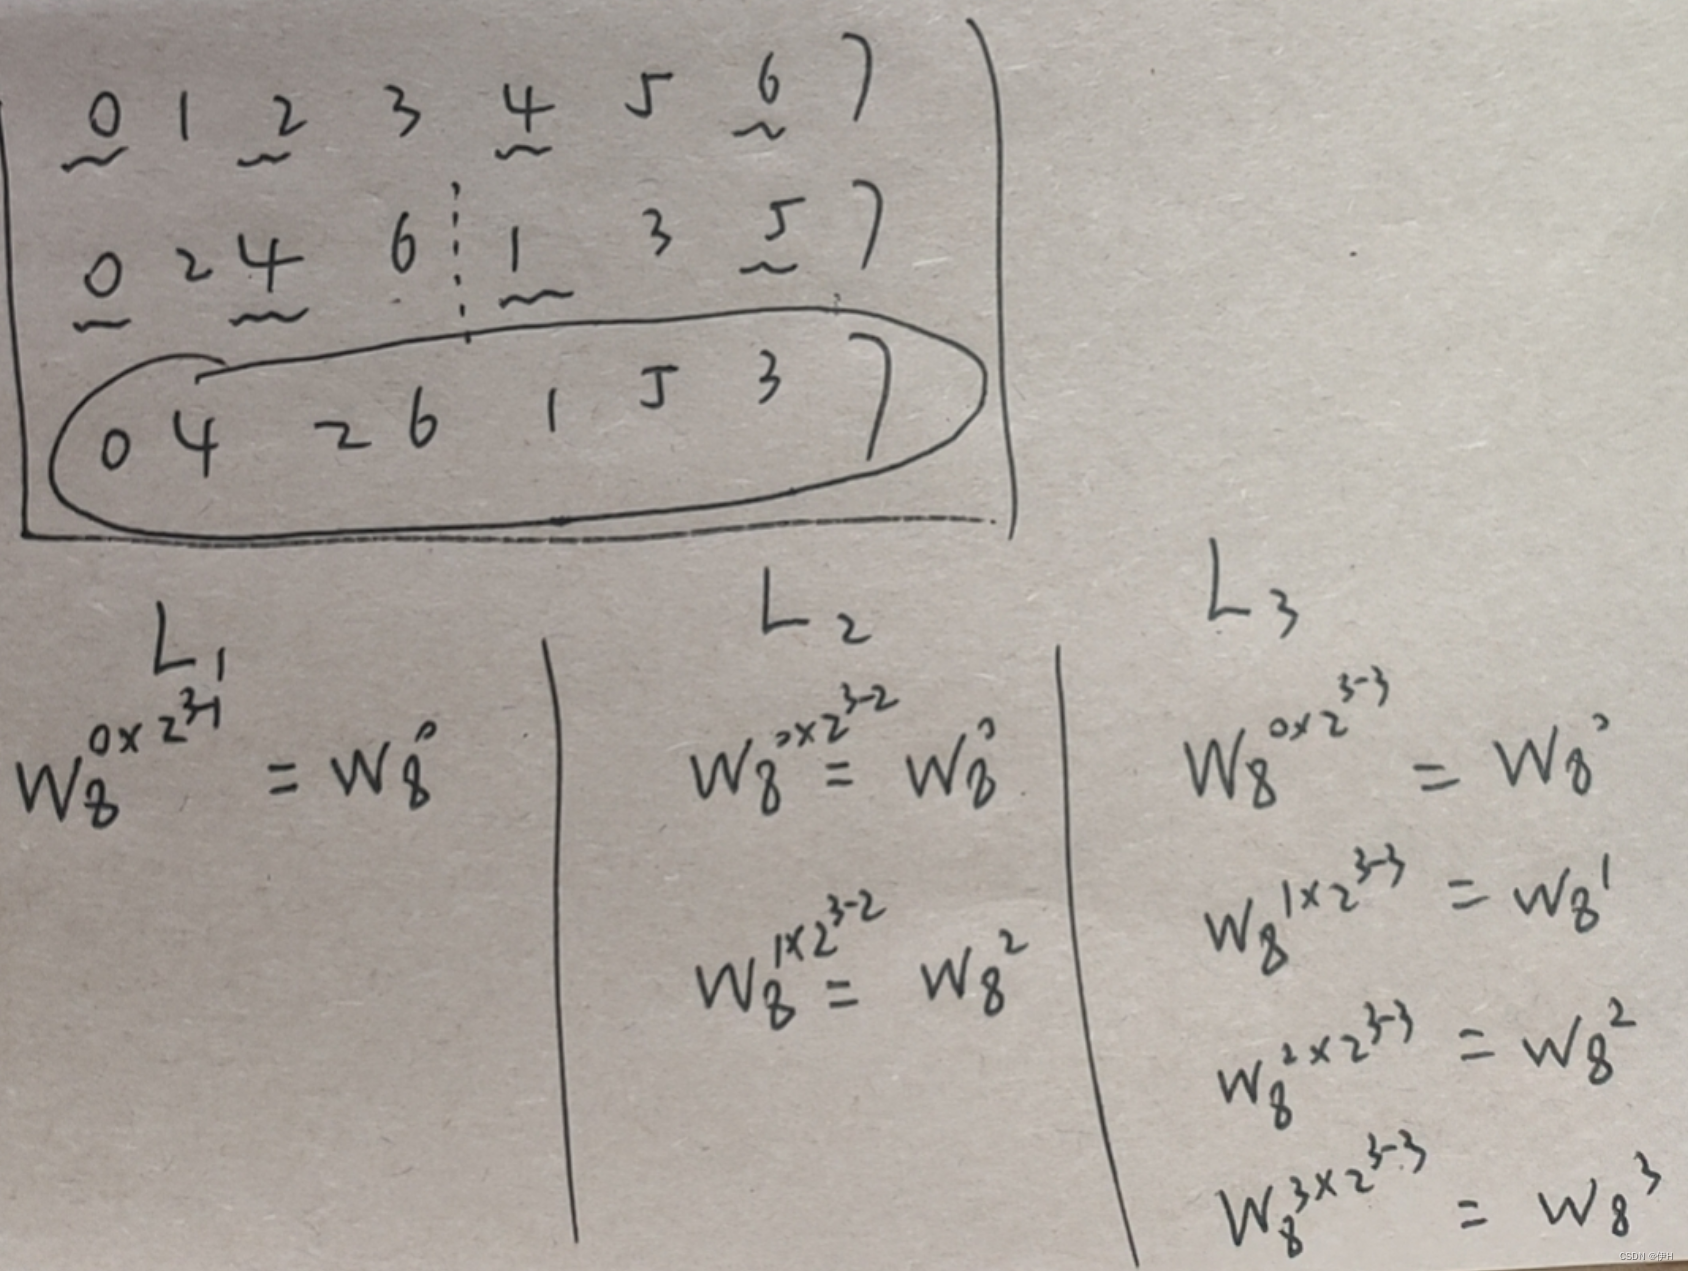 0 1 2 3 4 5 6 7
0 2 4 6 1 3 5 7
0 4 2 6 1 5 3 7
L₁ L₂ L₃
W₈^{0×2^{3-1}} = W₈^0 W₈^{0×2^{3-2}} = W₈^0 W₈^{0×2^{3-3}} = W₈^0
W₈^{1×2^{3-2}} = W₈^2 W₈^{1×2^{3-3}} = W₈^1
W₈^{2×2^{3-3}} = W₈^2
W₈^{3×2^{3-3}} = W₈^3
CSDN @伊H